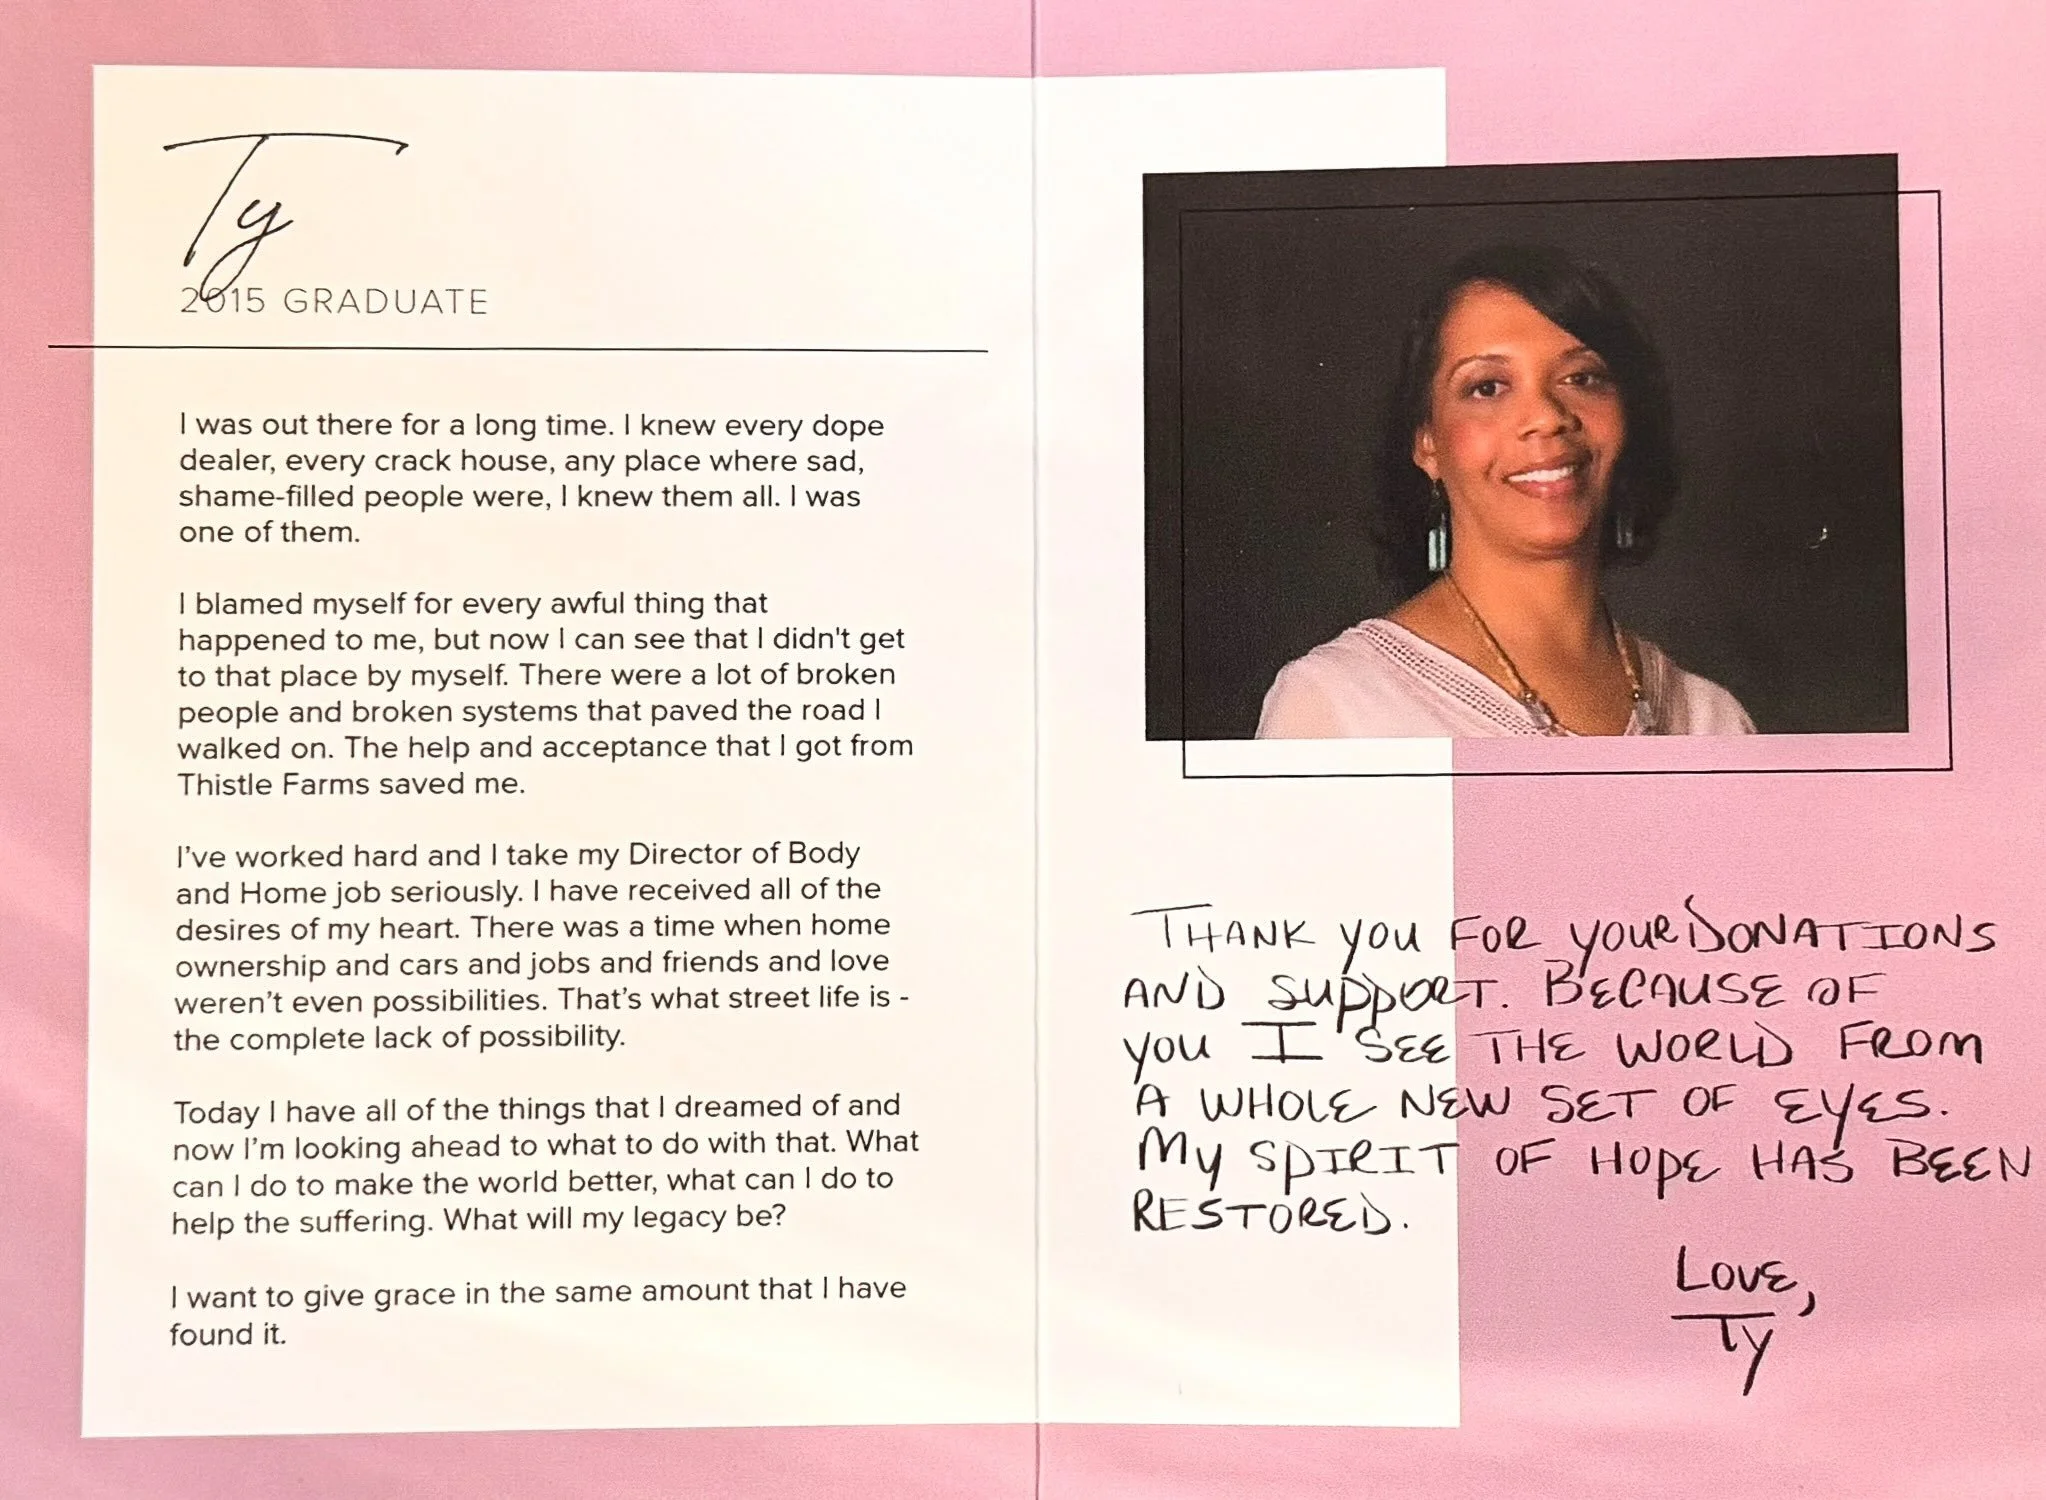 Ty
2015 GRADUATE
I was out there for a long time. I knew every dope
dealer, every crack house, any place where sad,
shame-filled people were, I knew them all. I was
one of them.
I blamed myself for every awful thing that
happened to me, but now I can see that I didn't get
to that place by myself. There were a lot of broken
people and broken systems that paved the road I
walked on. The help and acceptance that I got from
Thistle Farms saved me.
I've worked hard and I take my Director of Body
and Home job seriously. I have received all of the
desires of my heart. There was a time when home
ownership and cars and jobs and friends and love
weren't even possibilities. That's what street life is -
the complete lack of possibility.
Today I have all of the things that I dreamed of and
now I'm looking ahead to what to do with that. What
can I do to make the world better, what can I do to
help the suffering. What will my legacy be?
I want to give grace in the same amount that I have
found it.
THANK YOU FOR YOUR DONATIONS
AND SUPPORT. BECAUSE OF
YOU I SEE THE WORLD FROM
A WHOLE NEW SET OF EYES.
MY SPIRIT OF HOPE HAS BEEN
RESTORED.
LOVE,
Ty